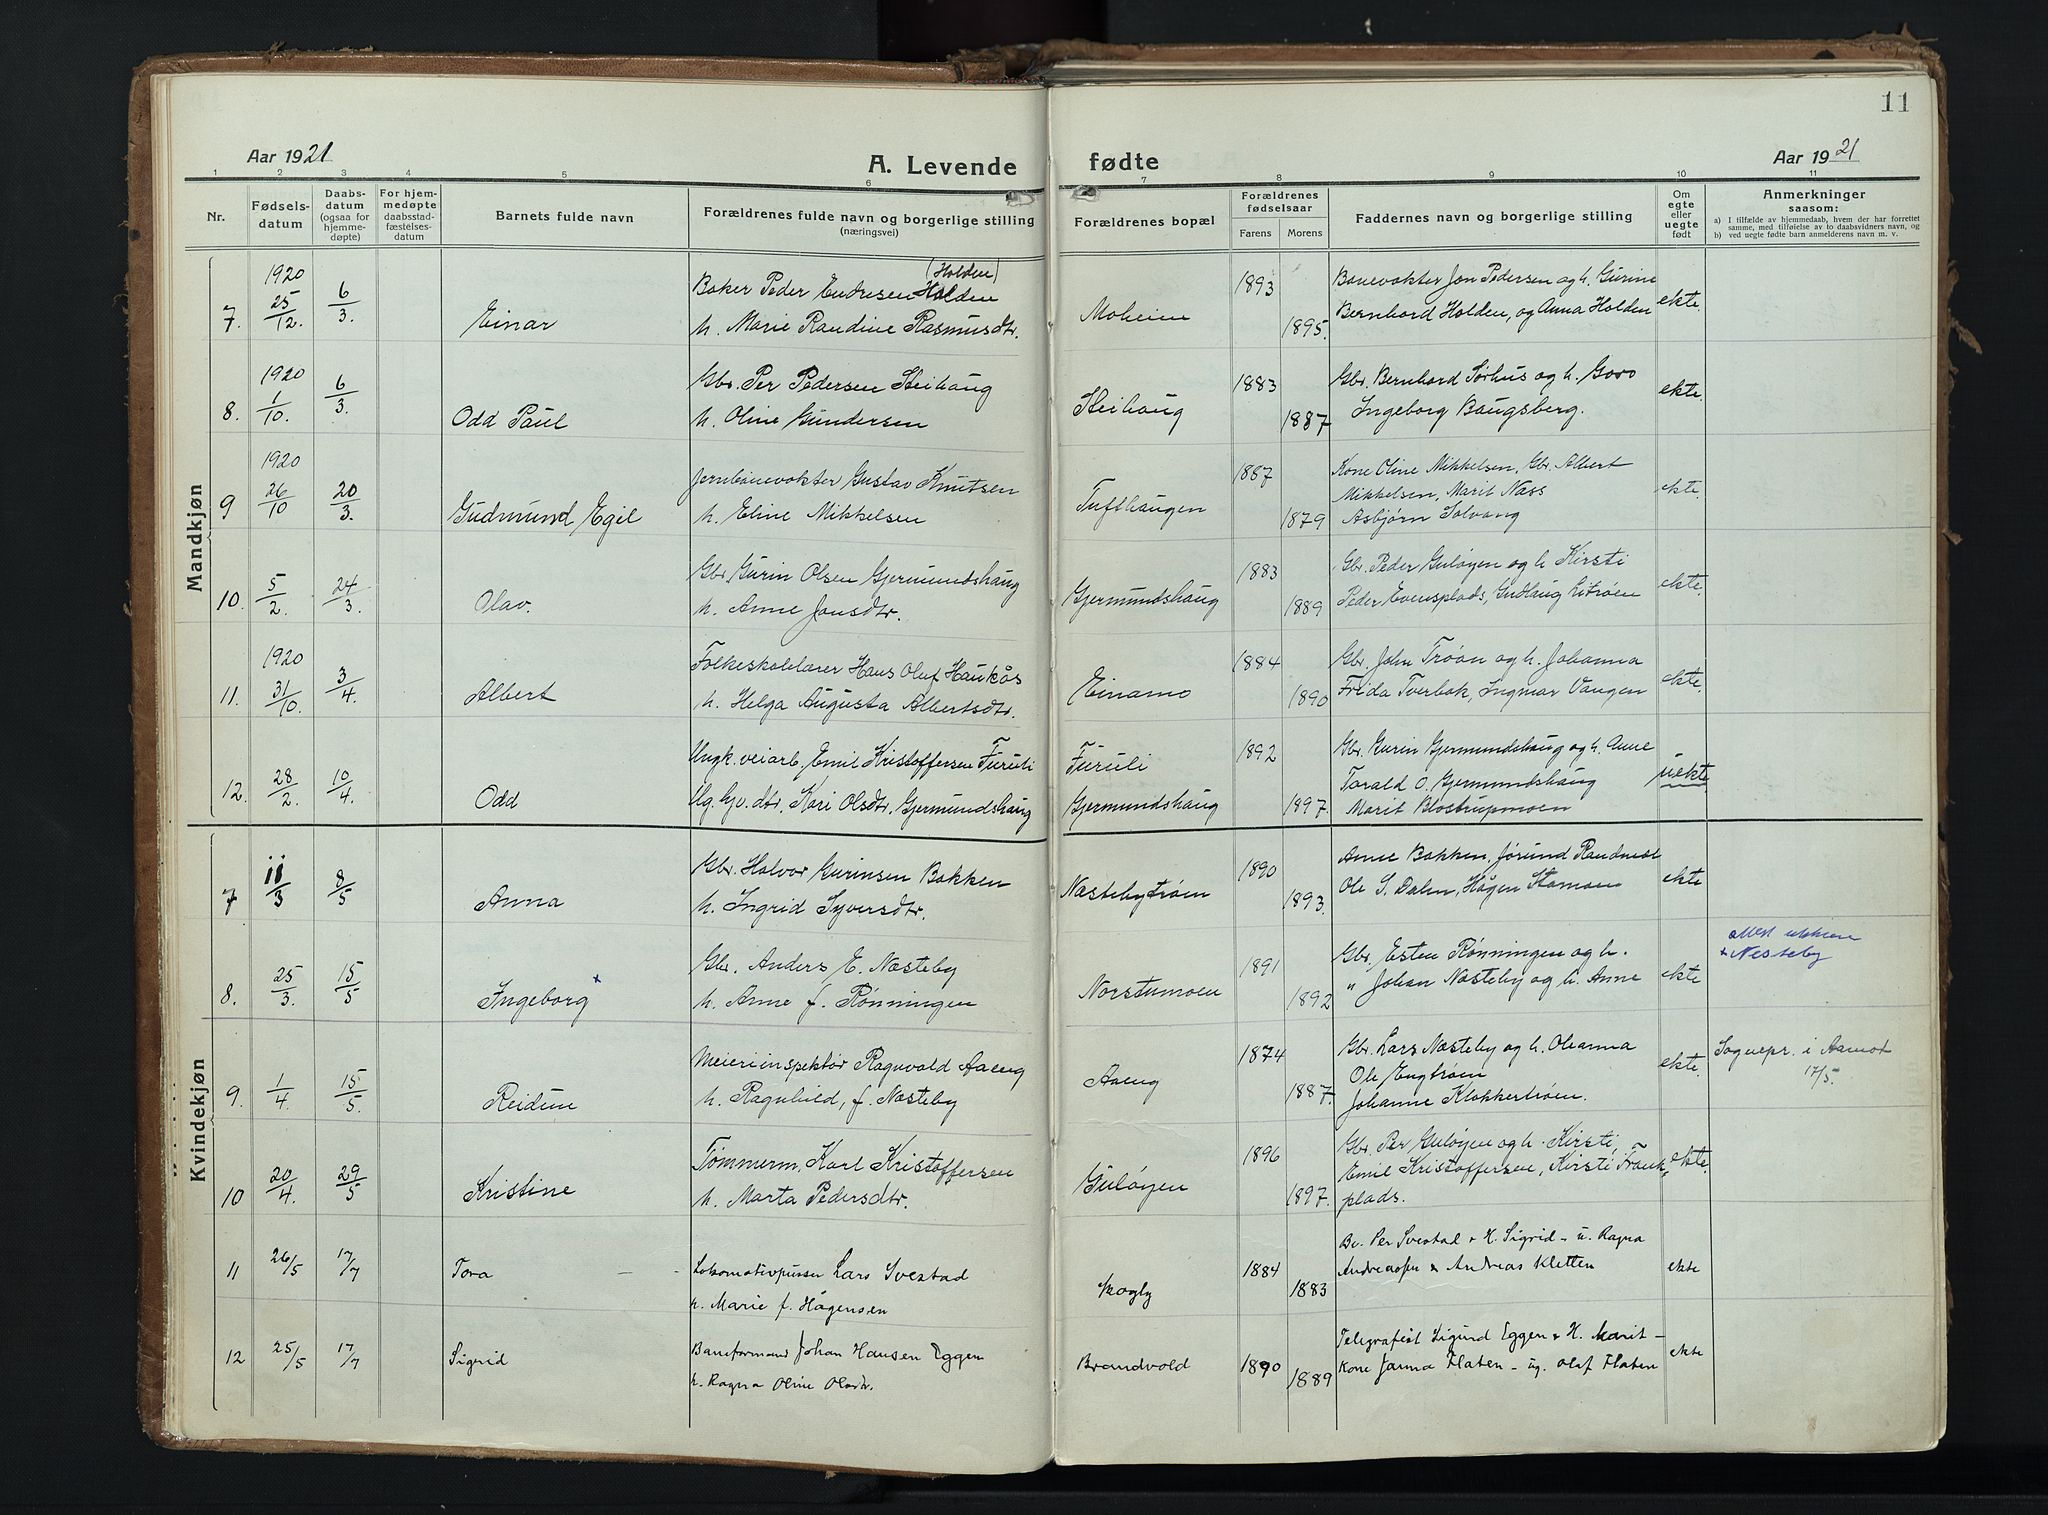 11
Aar 1921
A. Levende
fødte
Aar 1921
1 2 3 4 5 6 7 8 9 10 11
Nr.
Fødsels-
datum
Daabs-
datum
(ogsaa for
hjemme-
døpte)
For hjem-
medøpte
daabsstad-
fæstelses-
datum
Barnets fulde navn
Forældrenes fulde navn og borgerlige stilling
(næringsvei)
Forældrenes bopæl
Forældrenes
fødselsaar
Farens Morens
Faddernes navn og borgerlige stilling
Om
egte
eller
uegte
født
Anmerkninger
saasom:
a) I tilfælde av hjemmedaab, hvem der har forrettet
samme, med tilføielse av to daabsvidners navn, og
b) ved uegte fødte barn anmelderens navn m. v.
Mandkjøn
7. 1920 25/12. 6/3. Einar
(Holden)
Baker Peder Endresen Holden
h. Marie Randine Rasmusdtr.
Moheim
1893
1895.
Banevokter Jon Pedersen og h. Gurine
Bernhard Holden, og Anna Holden
ekte.
8. 1920 1/10. 6/3. Odd Paul
Gbr. Per Pedersen Steihaug
h. Oline Gundersen
Steihaug
1883
1887
Gbr. Bernhard Sørhus og h. Goro
Ingeborg Baugsberg.
ekte.
9 1920 26/10 20/3. Gudmund Egil
Jernbanevokter Gustav Knutsen
h. Eline Mikkelsen
Tufthaugen
1887
1879
Kone Oline Mikkelsen, Gbr. Albert
Mikkelsen, Marit Næss
Asbjørn Solvang
ekte.
10. 5/2. 24/3. Olav.
Gbr. Gurin Olsen Gjermundshaug
h. Anne Jonsdtr.
Gjermundshaug
1883
1889
Gbr. Peder Guløyen og h Kirsti
Peder Evensplads, Gudlaug Litrøen
ekte.
11. 1920 31/10. 3/4. Albert
Folkeskolelærer Hans Oluf Haukås
h. Helga Augusta Albertsdtr.
Einamo
1884
1890
Gbr. John Trøan og h. Johanna
Frida Tverbak, Ingmar Vangen
ekte.
12. 28/2. 10/4. Odd
Ungk. veiarb. Emil Kristoffersen Furuli
Ug. hv. dtr. Kari Olsdtr. Gjermundshaug
Furuli
Gjermundshaug
1892
1897.
Gbr. Gurin Gjermundshaug og h. Anne
Torald O. Gjermundshaug
Marit Blostrupmoen
uekte
Kvindekjøn
7 11/3 8/5 Anna
Gbr. Halvor Gurinsen Bakken
h. Ingrid Syversdtr.
Næstebytrøen
1890
1893.
Anne Bakken, Jørund
Ole S. Dalen, Hågen Stamoen
ekte
8. 25/3. 15/5 Ingeborg x
Gbr. Anders E. Næsteby
h. Anne f. Rønningen
Norstumoen
1891
1892
Gbr. Esten Rønningen og h.
" Johan Næsteby og h. Anne
ekte
x Nesteby
9. 1/4 15/5. Reidun
Meieriinspektør Ragnvald Aaeng
h. Ragnhild, f. Næsteby
Aaeng
1874
1887.
Gbr. Lars Næsteby og h. Oleanna
Ole Engtrøen
Johanne Klokkertrøen.
ekte.
Sognepr. i Aamot
17/5.
10 20/4. 29/5 Kristine
Tømmerm. Karl Kristoffersen
h. Marta Pedersdtr.
Guløyen
1896
1897.
Gbr. Per Guløyen og h. Kirsti,
Emil Kristoffersen, Kirsti Frank-
plads.
ekte.
11 26/5 17/7 Tora
Lokomotivpusser Lars Svestad
h. Marie f. Hågensen
Skogly
1884
1883
Bv. Per Svestad + H. Sigrid - u. Ragna
Andreassen & Andreas Kletten
ekte
12 25/5 17/7 Sigrid
Baneformand Johan Hansen Eggen
h. Ragna Oline Olsdtr.
Brandvold
1890
1889
Telegrafist Sigurd Eggen + H. Marit -
Kone Janna Flaten - ug. Olaf Flaten
ekte